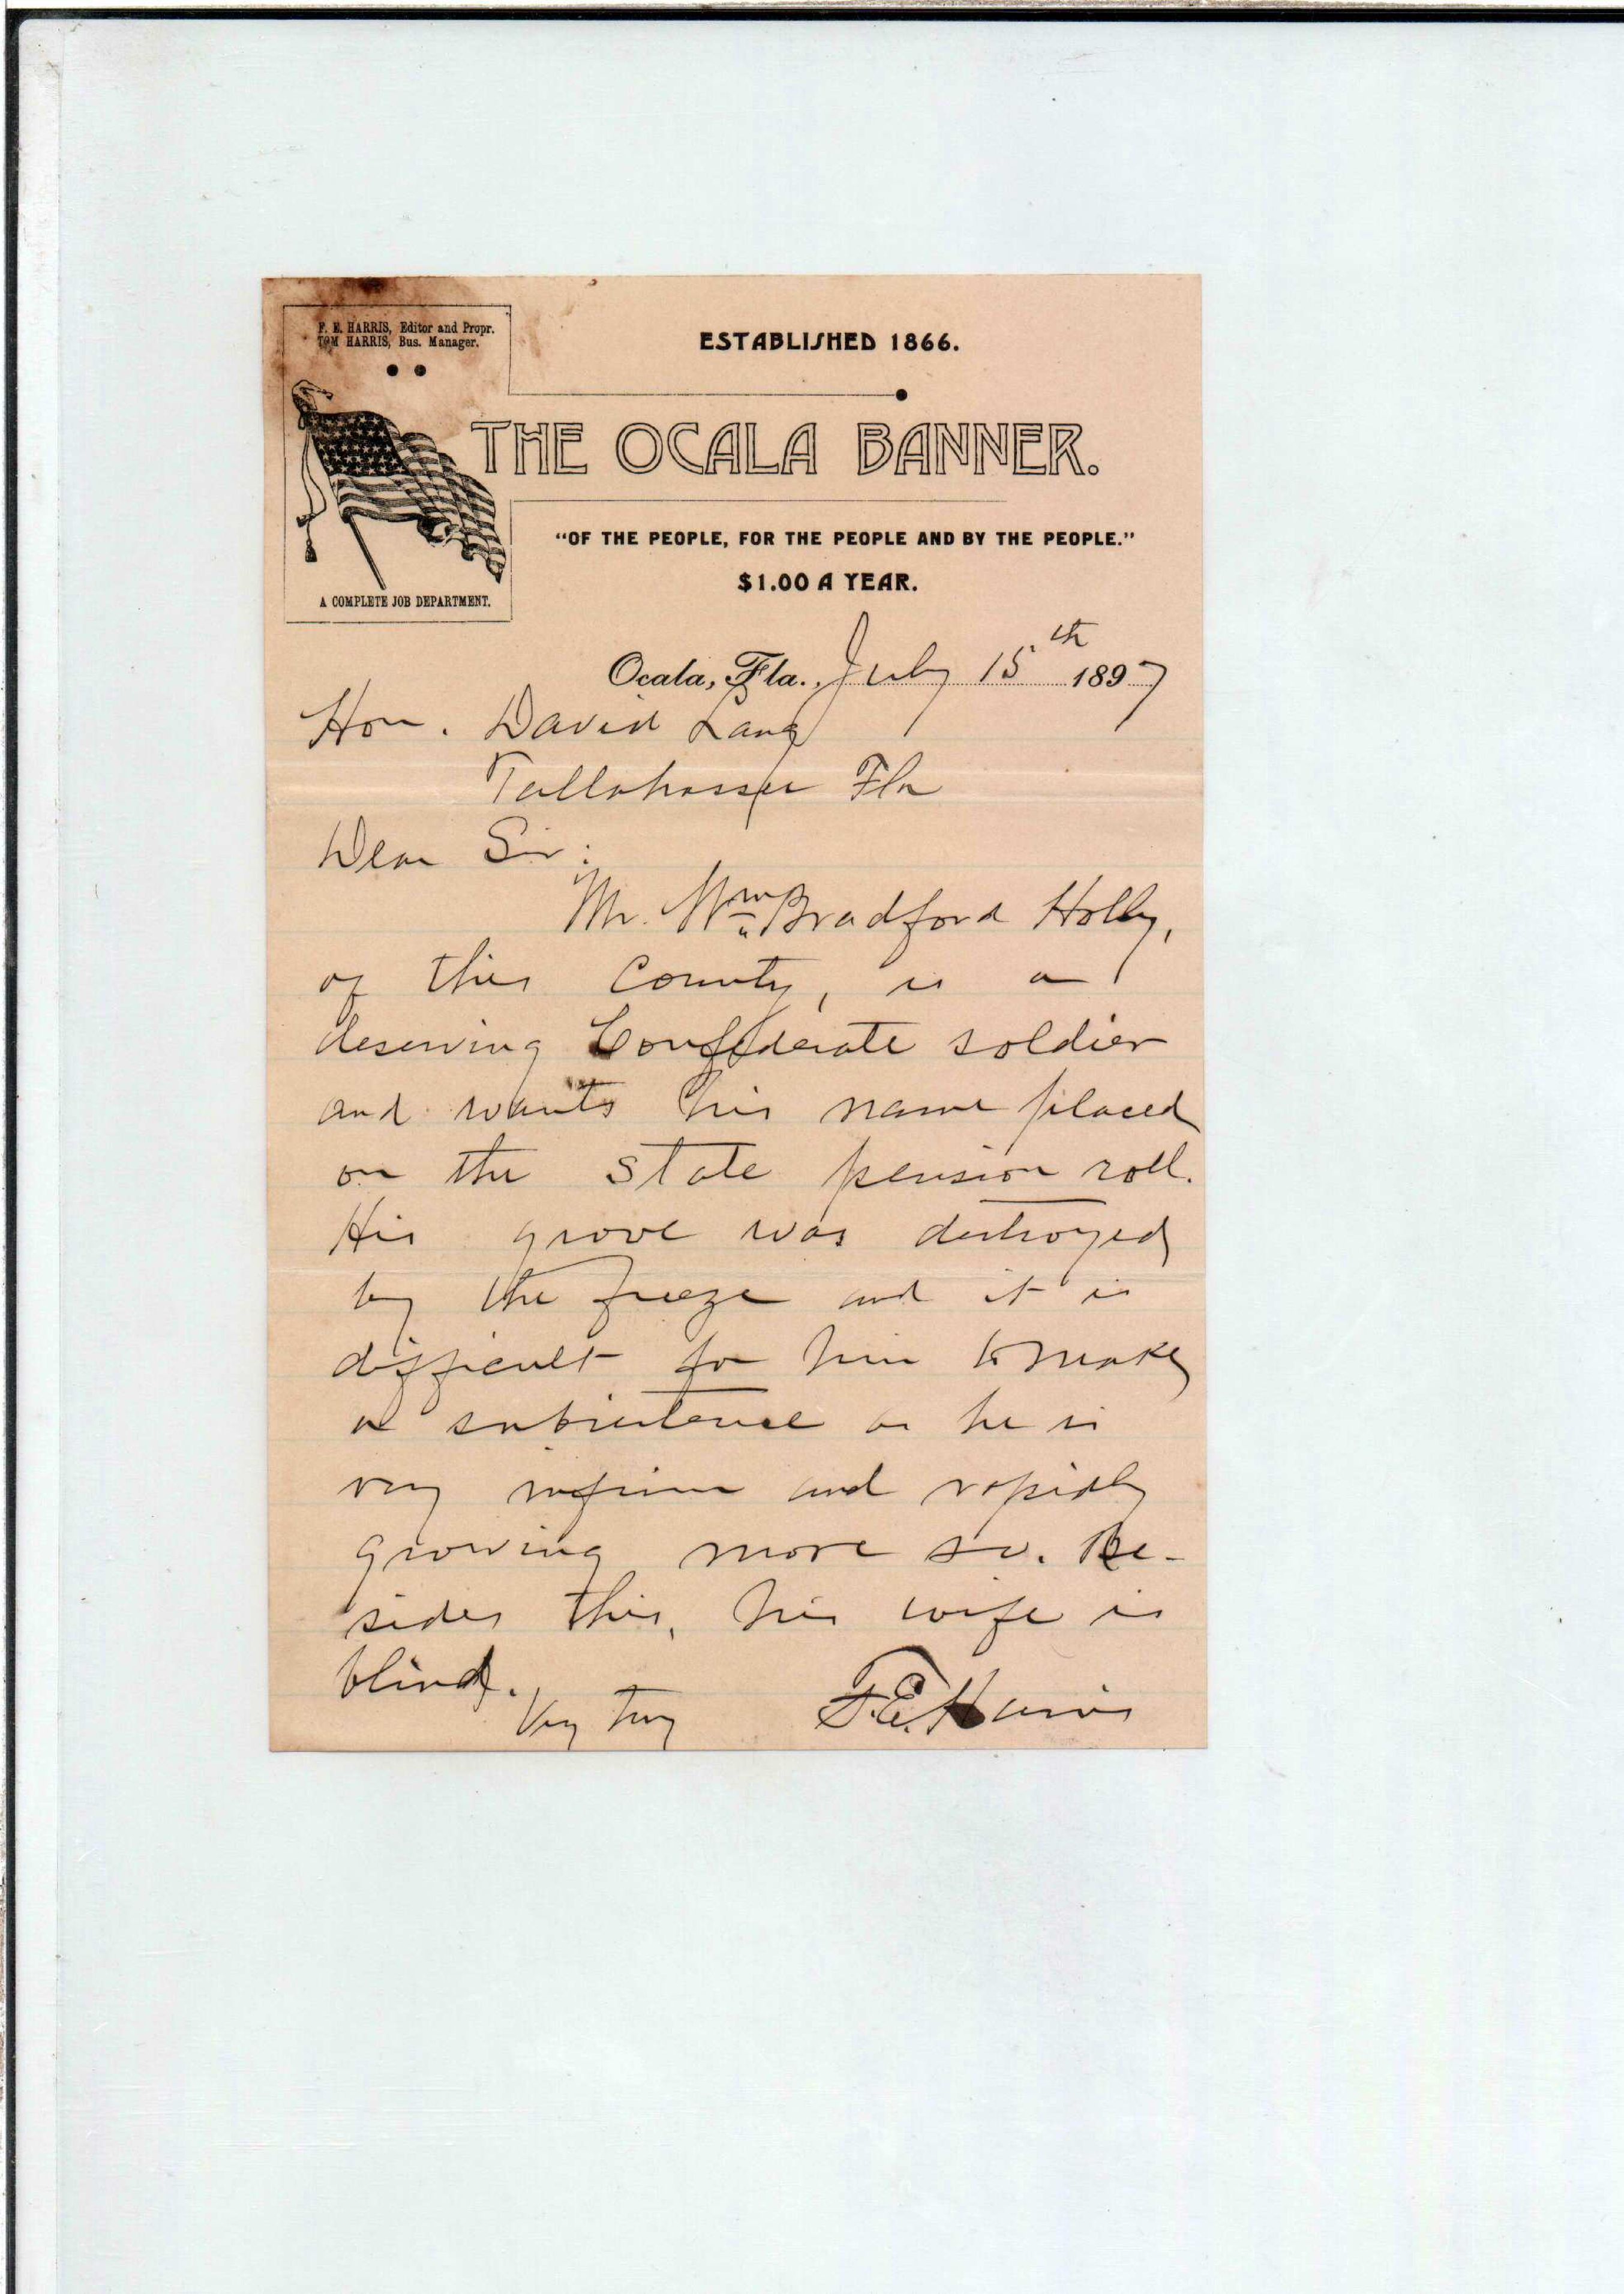 F. E. HARRIS, Editor and Propr.
TOM HARRIS, Bus. Manager.
ESTABLISHED 1866.
THE OCALA BANNER.
"OF THE PEOPLE, FOR THE PEOPLE AND BY THE PEOPLE."
$1.00 A YEAR.
A COMPLETE JOB DEPARTMENT.
Ocala, Fla., July 15th 1897
Hon. David Lang
Tallahassee Fla
Dear Sir:
Mr. Wm Bradford Holly,
of this County, is a
deserving Confederate soldier
and wants his name placed
on the state pension roll.
His grove was destroyed
by the freeze and it is
difficult for him to make
a subsistence as he is
very infirm and rapidly
growing more so. Be-
sides this, his wife is
blind.
Very truly
F.E. Harris